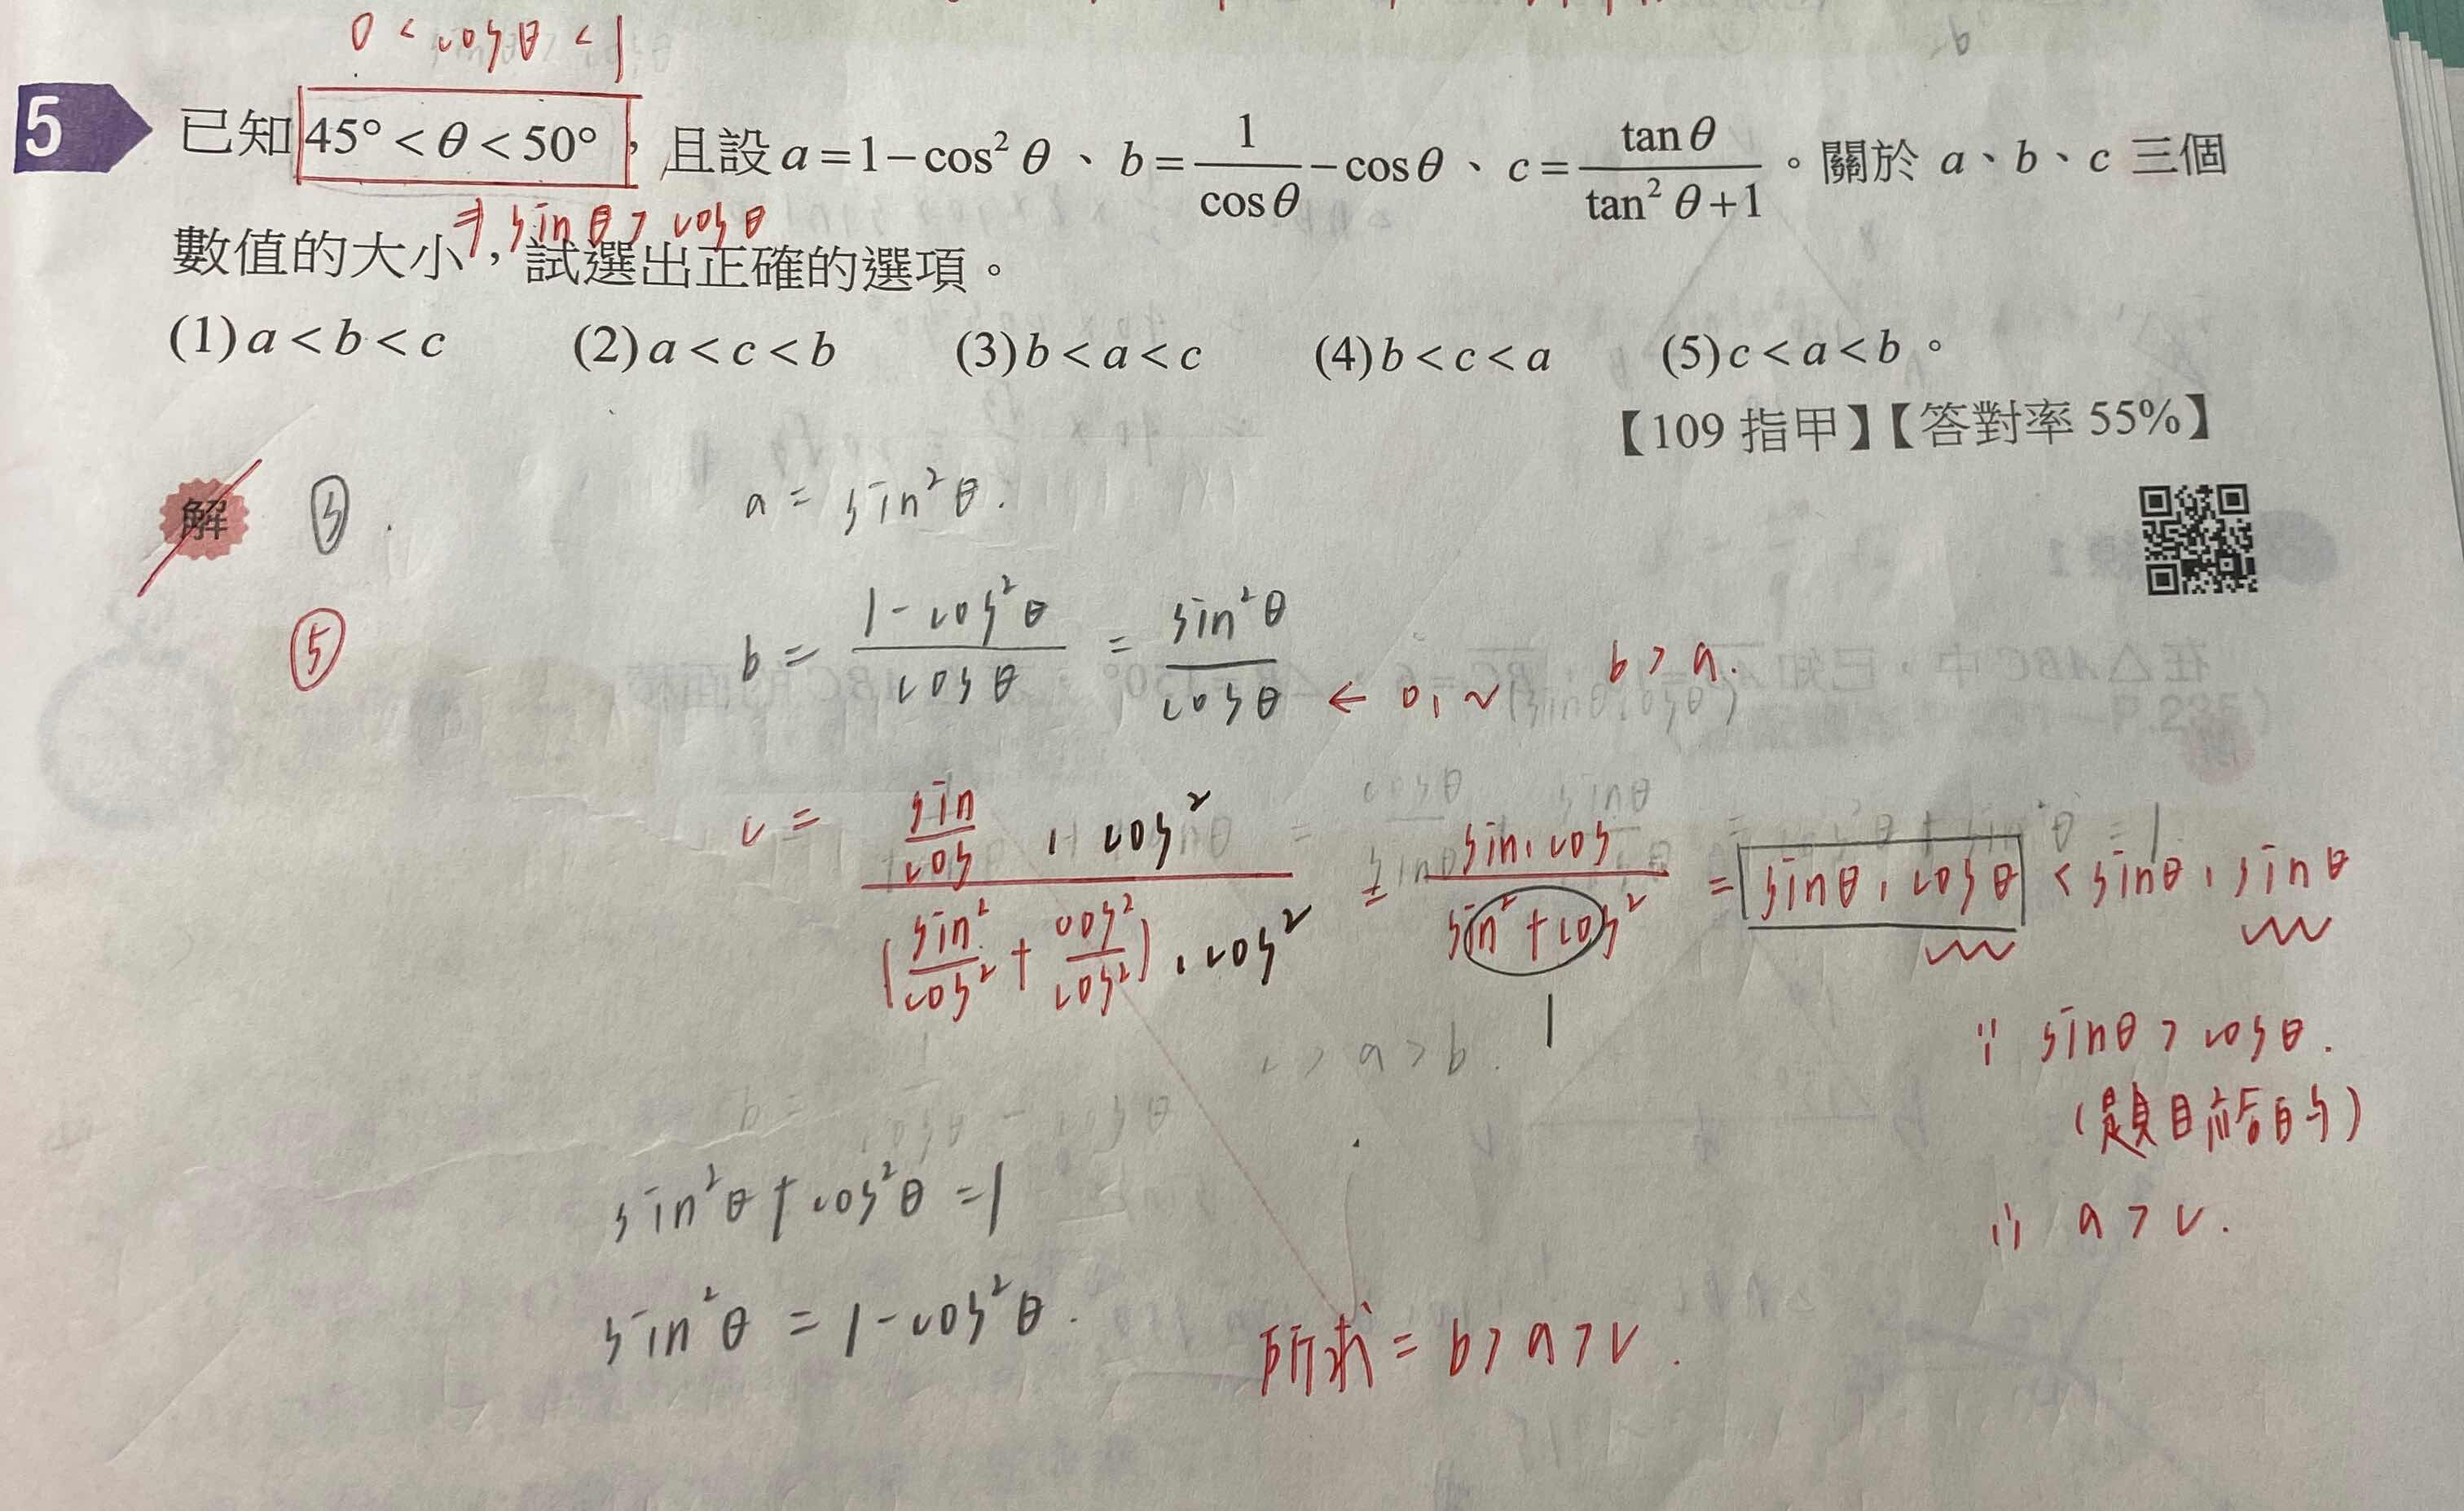 0 < cosθ < 1
5 已知 45° < θ < 50°，且設 a = 1 − cos² θ、b = 1/cosθ − cosθ、c = tanθ/(tan² θ + 1)。關於 a、b、c 三個
⇒ sinθ > cosθ
數值的大小，試選出正確的選項。
(1) a < b < c (2) a < c < b (3) b < a < c (4) b < c < a (5) c < a < b。
【109 指甲】【答對率 55%】
解 a = sin²θ.
⑤ b = (1 − cos²θ)/cosθ = sin²θ/cosθ ← 0.~ b > a.
c = (sin/cos · cos²)/((sin²/cos² + cos²/cos²) · cos²) = (sin · cos)/(sin² + cos²) = sinθ · cosθ < sinθ · sinθ
1
∵ sinθ > cosθ.
(題目給的)
∴ a > c.
sin²θ + cos²θ = 1
sin²θ = 1 − cos²θ.
所求 = b > a > c.